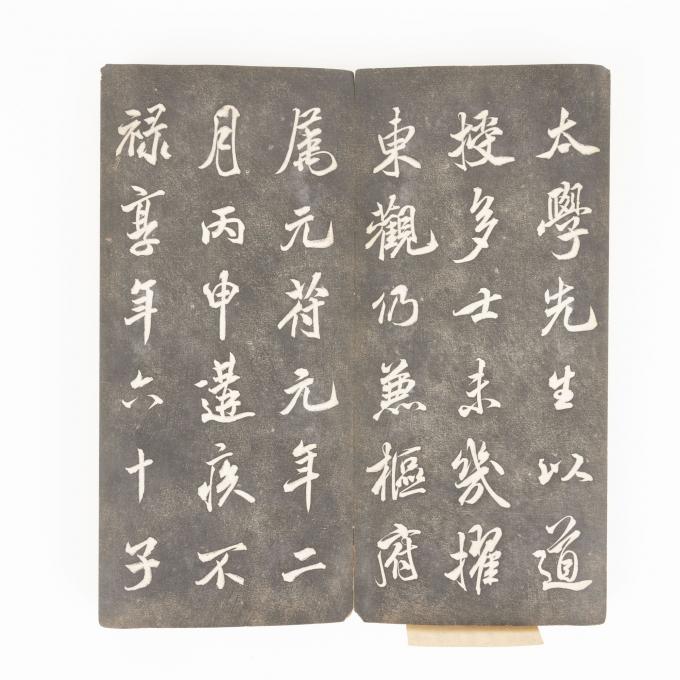 太學先生以道
授多士未幾擢
東觀仍兼樞府
属元符元年二
月丙申遘疾不
禄享年六十子